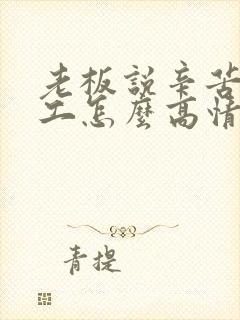 老板說辛苦
工怎麼高情
青提